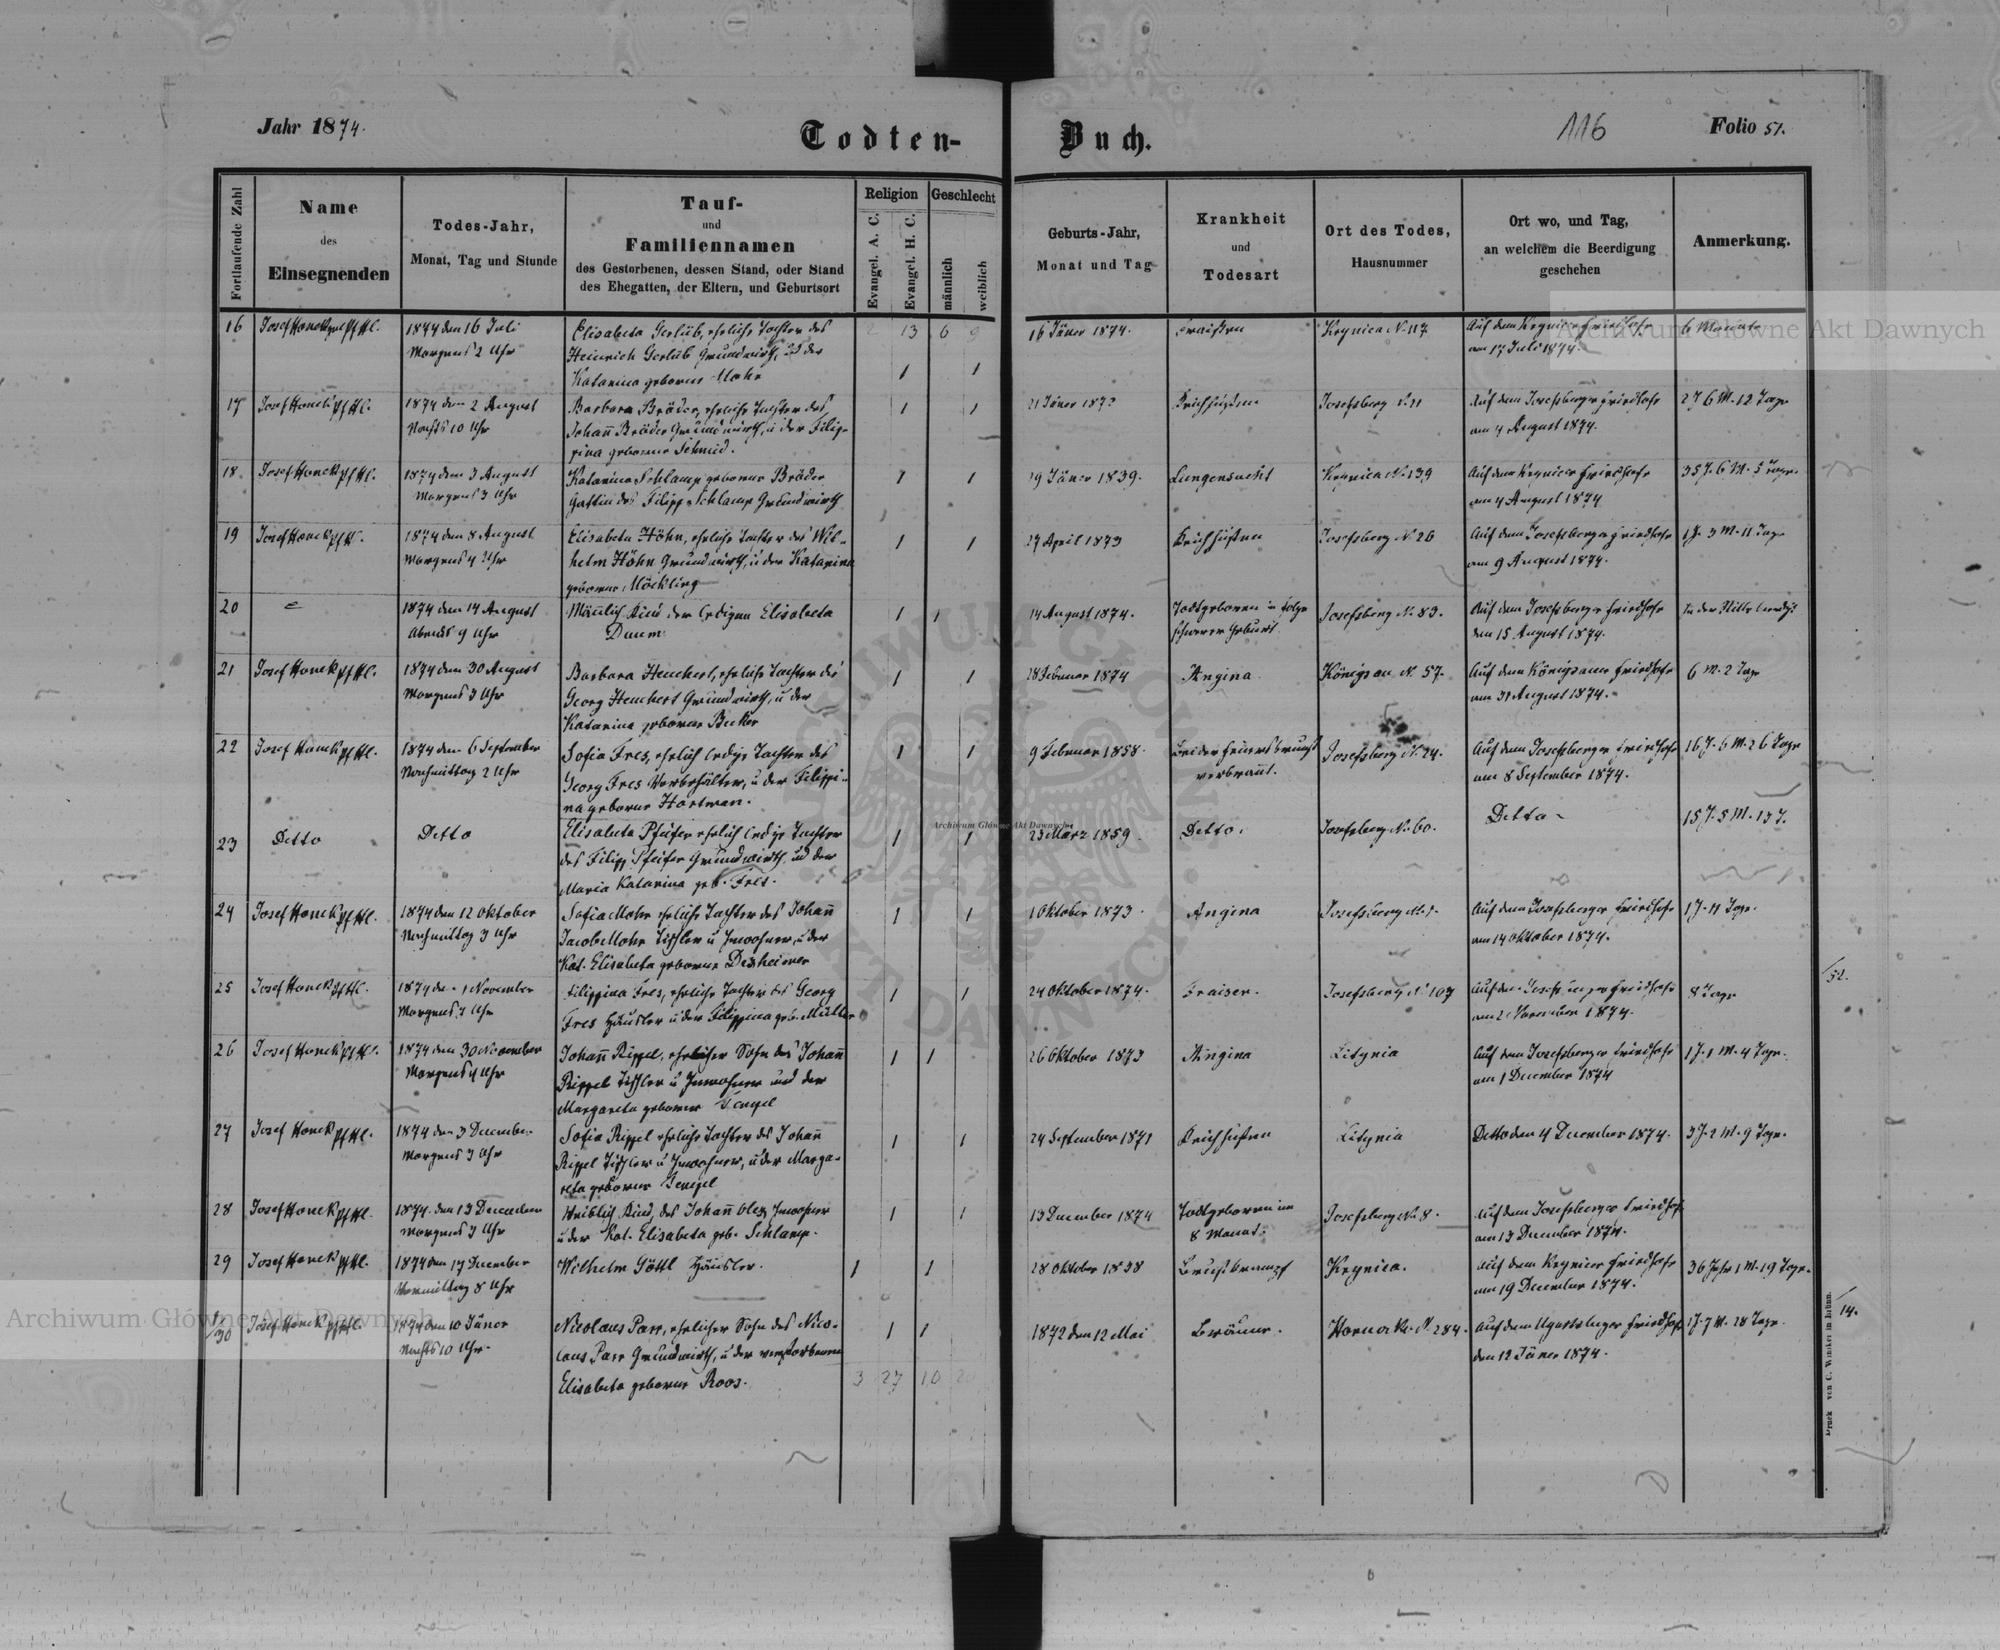 Jahr 1874.
Todten-Buch.
116
Folio 51.
Fortlaufende Zahl
Name
des
Einsegnenden
Todes-Jahr,
Monat, Tag und Stunde
Tauf-
und
Familiennamen
des Gestorbenen, dessen Stand, oder Stand
des Ehegatten, der Eltern, und Geburtsort
Religion
Evangel. A. C.
Evangel. H. C.
Geschlecht
männlich
weiblich
Geburts-Jahr,
Monat und Tag
Krankheit
und
Todesart
Ort des Todes,
Hausnummer
Ort wo, und Tag,
an welchem die Beerdigung
geschehen
Anmerkung.
16 Josef Honek
1874 den 16 Juli
Morgens 2 Uhr
Elisabeta Gerlub, eheliche Tochter des
Heinrich Gerlub Grundwirth, und der
Katarina geborene Mohr
2 13 6 9
1 1
16 Jäner 1874.
Fraissen
Krynica N. 117
Auf dem Krynicer Friedhofe
am 17 Juli 1874.
6 Monate
17 Josef Honek Pf HC.
1874 den 2 August
Nachts 10 Uhr
Barbara Bräder, eheliche Tochter des
Johann Bräder Grundwirth, u der Filip-
pina geborene Schmid.
1 1
21 Jäner 1873
Keichhusten
Josefsberg N. 11
Auf dem Josefsberger Friedhofe
am 4 August 1874.
6 M. 12 Tage
18. Josef Honek Pf HC.
1874 den 3 August
Morgens 3 Uhr
Katarina Schlamp geborene Bräder
Gattin des Filipp Schlamp Grundwirth
1 1
29 Jäner 1839.
Lungensucht
Krynica N. 139
Auf dem Krynicer Friedhofe
am 4 August 1874
35 J. 6 M. 5 Tage.
19 Josef Honek Pf HC.
1874 den 8 August
Morgens 4 Uhr
Elisabeta Höhn, eheliche Tochter des Wil-
helm Höhn Grundwirth, u der Katarina
geborene Möckling
1 1
27 April 1873
Keichhusten
Josefsberg N. 26
Auf dem Josefsberger Friedhofe
am 9 August 1874.
1 J. 3 M. 11 Tage
20
1874 den 14 August
Abends 9 Uhr
Männlich Kind der ledigen Elisabeta
Daum
1 1
14 August 1874.
Todtgeboren in Folge
schwerer Geburt.
Josefsberg N. 83.
Auf dem Josefsberger Friedhofe
den 15 August 1874.
In der Stille beerdigt
21 Josef Honek Pf HC.
1874 den 30 August
Morgens 3 Uhr
Barbara Heuchert, eheliche Tochter des
Georg Heuchert Grundwirth, u der
Katarina geborene Becker
1 1
28 Februar 1874
Angina.
Königsau N. 57.
Auf dem Königsauer Friedhofe
am 31 August 1874.
6 M. 2 Tage
22 Josef Honek Pf HC.
1874 den 6 September
Nachmittag 2 Uhr
Sofia Fres, ehelich ledige Tochter des
Georg Fres Vorbehälter, u der Filippi-
na geborene Hartman.
1 1
9 Februar 1858.
Bei der Feuersbrunst
verbrannt.
Josefsberg N. 24.
Auf dem Josefsberger Friedhofe
am 8 September 1874.
16 J. 6 M. 26 Tage
23 Detto
Detto
Elisabeta Pfeifer ehelich ledige Tochter
des Filipp Pfeifer Grundwirth, und der
Maria Katarina geb. Fres.
1 1
23 März 1859.
Detto.
Josefsberg N. 60.
Detto
15 J. 5 M. 13 T.
24 Josef Honek Pf HC.
1874 den 12 Oktober
Nachmittag 3 Uhr
Sofia Mohr eheliche Tochter des Johann
Jacob Mohr Tischler u Inwohner, u der
Kat. Elisabeta geborene Dexheimer
1 1
1 Oktober 1873.
Angina
Josefsberg N.
Auf dem Josefsberger Friedhofe
am 14 Oktober 1874.
1 J. 11 Tage.
25 Josef Honek Pf HC.
1874 den 1 November
Morgens 3 Uhr
Filippina Fres, eheliche Tochter des Georg
Fres Häusler u der Filippina geb. Müller
1 1
24 Oktober 1874.
Fraisen.
Josefsberg N. 107
Auf dem Josefsberger Friedhofe
am 2 November 1874.
8 Tage
/52.
26 Josef Honek Pf HC.
1874 den 30 November
Morgens 4 Uhr
Johann Rippel, ehelicher Sohn des Johann
Rippel Tischler u Inwohner und der
Margareta geborene Tempel
1 1
26 Oktober 1873
Angina
Litynia
Auf dem Josefsberger Friedhofe
am 1 December 1874
1 J. 1 M. 4 Tage.
27 Josef Honek Pf HC.
1874 den 3 December
Morgens 3 Uhr
Sofia Rippel eheliche Tochter des Johann
Rippel Tischler u Inwohner, u der Marga-
reta geborene Tempel
1 1
24 September 1871
Keichhusten
Litynia
Detto den 4 December 1874.
3 J. 2 M. 9 Tage.
28 Josef Honek Pf HC.
1874. den 13 December
Morgens 3 Uhr
Weiblich Kind, des Johann Inwohner
u der Kat. Elisabeta geb. Schlamp.
1 1
13 December 1874
Todtgeboren im
8 Monat.
Josefsberg N. 8.
Auf dem Josefsberger Friedhofe
am 13 December 1874.
29 Josef Honek Pf HC.
1874 den 17 December
Vormittag 8 Uhr
Wilhelm Göttl Häusler.
1 1
28 Oktober 1838
Brustkrampf
Krynica.
Auf dem Krynicer Friedhofe
am 19 December 1874.
36 Jahr 1 M. 19 Tage.
30 Josef Honek Pf HC.
1874 den 10 Jäner
Nachts 10 Uhr.
Nicolaus Parr, ehelicher Sohn des Nico-
laus Parr Grundwirth, u der verstorbenen
Elisabeta geborene Roos.
1 1
3 27 10 20
1872 den 12 Mai
Bräune.
N. 284.
Auf dem Friedhofe
den 12 Jäner 1874.
1 J. 7 M. 28 Tage.
/14.
Druck von C. Winiker in Brünn.
Archiwum Główne Akt Dawnych
Archiwum Główne Akt Dawnych
Archiwum Główne Akt Dawnych
ARCHIWUM GŁÓWNE AKT DAWNYCH